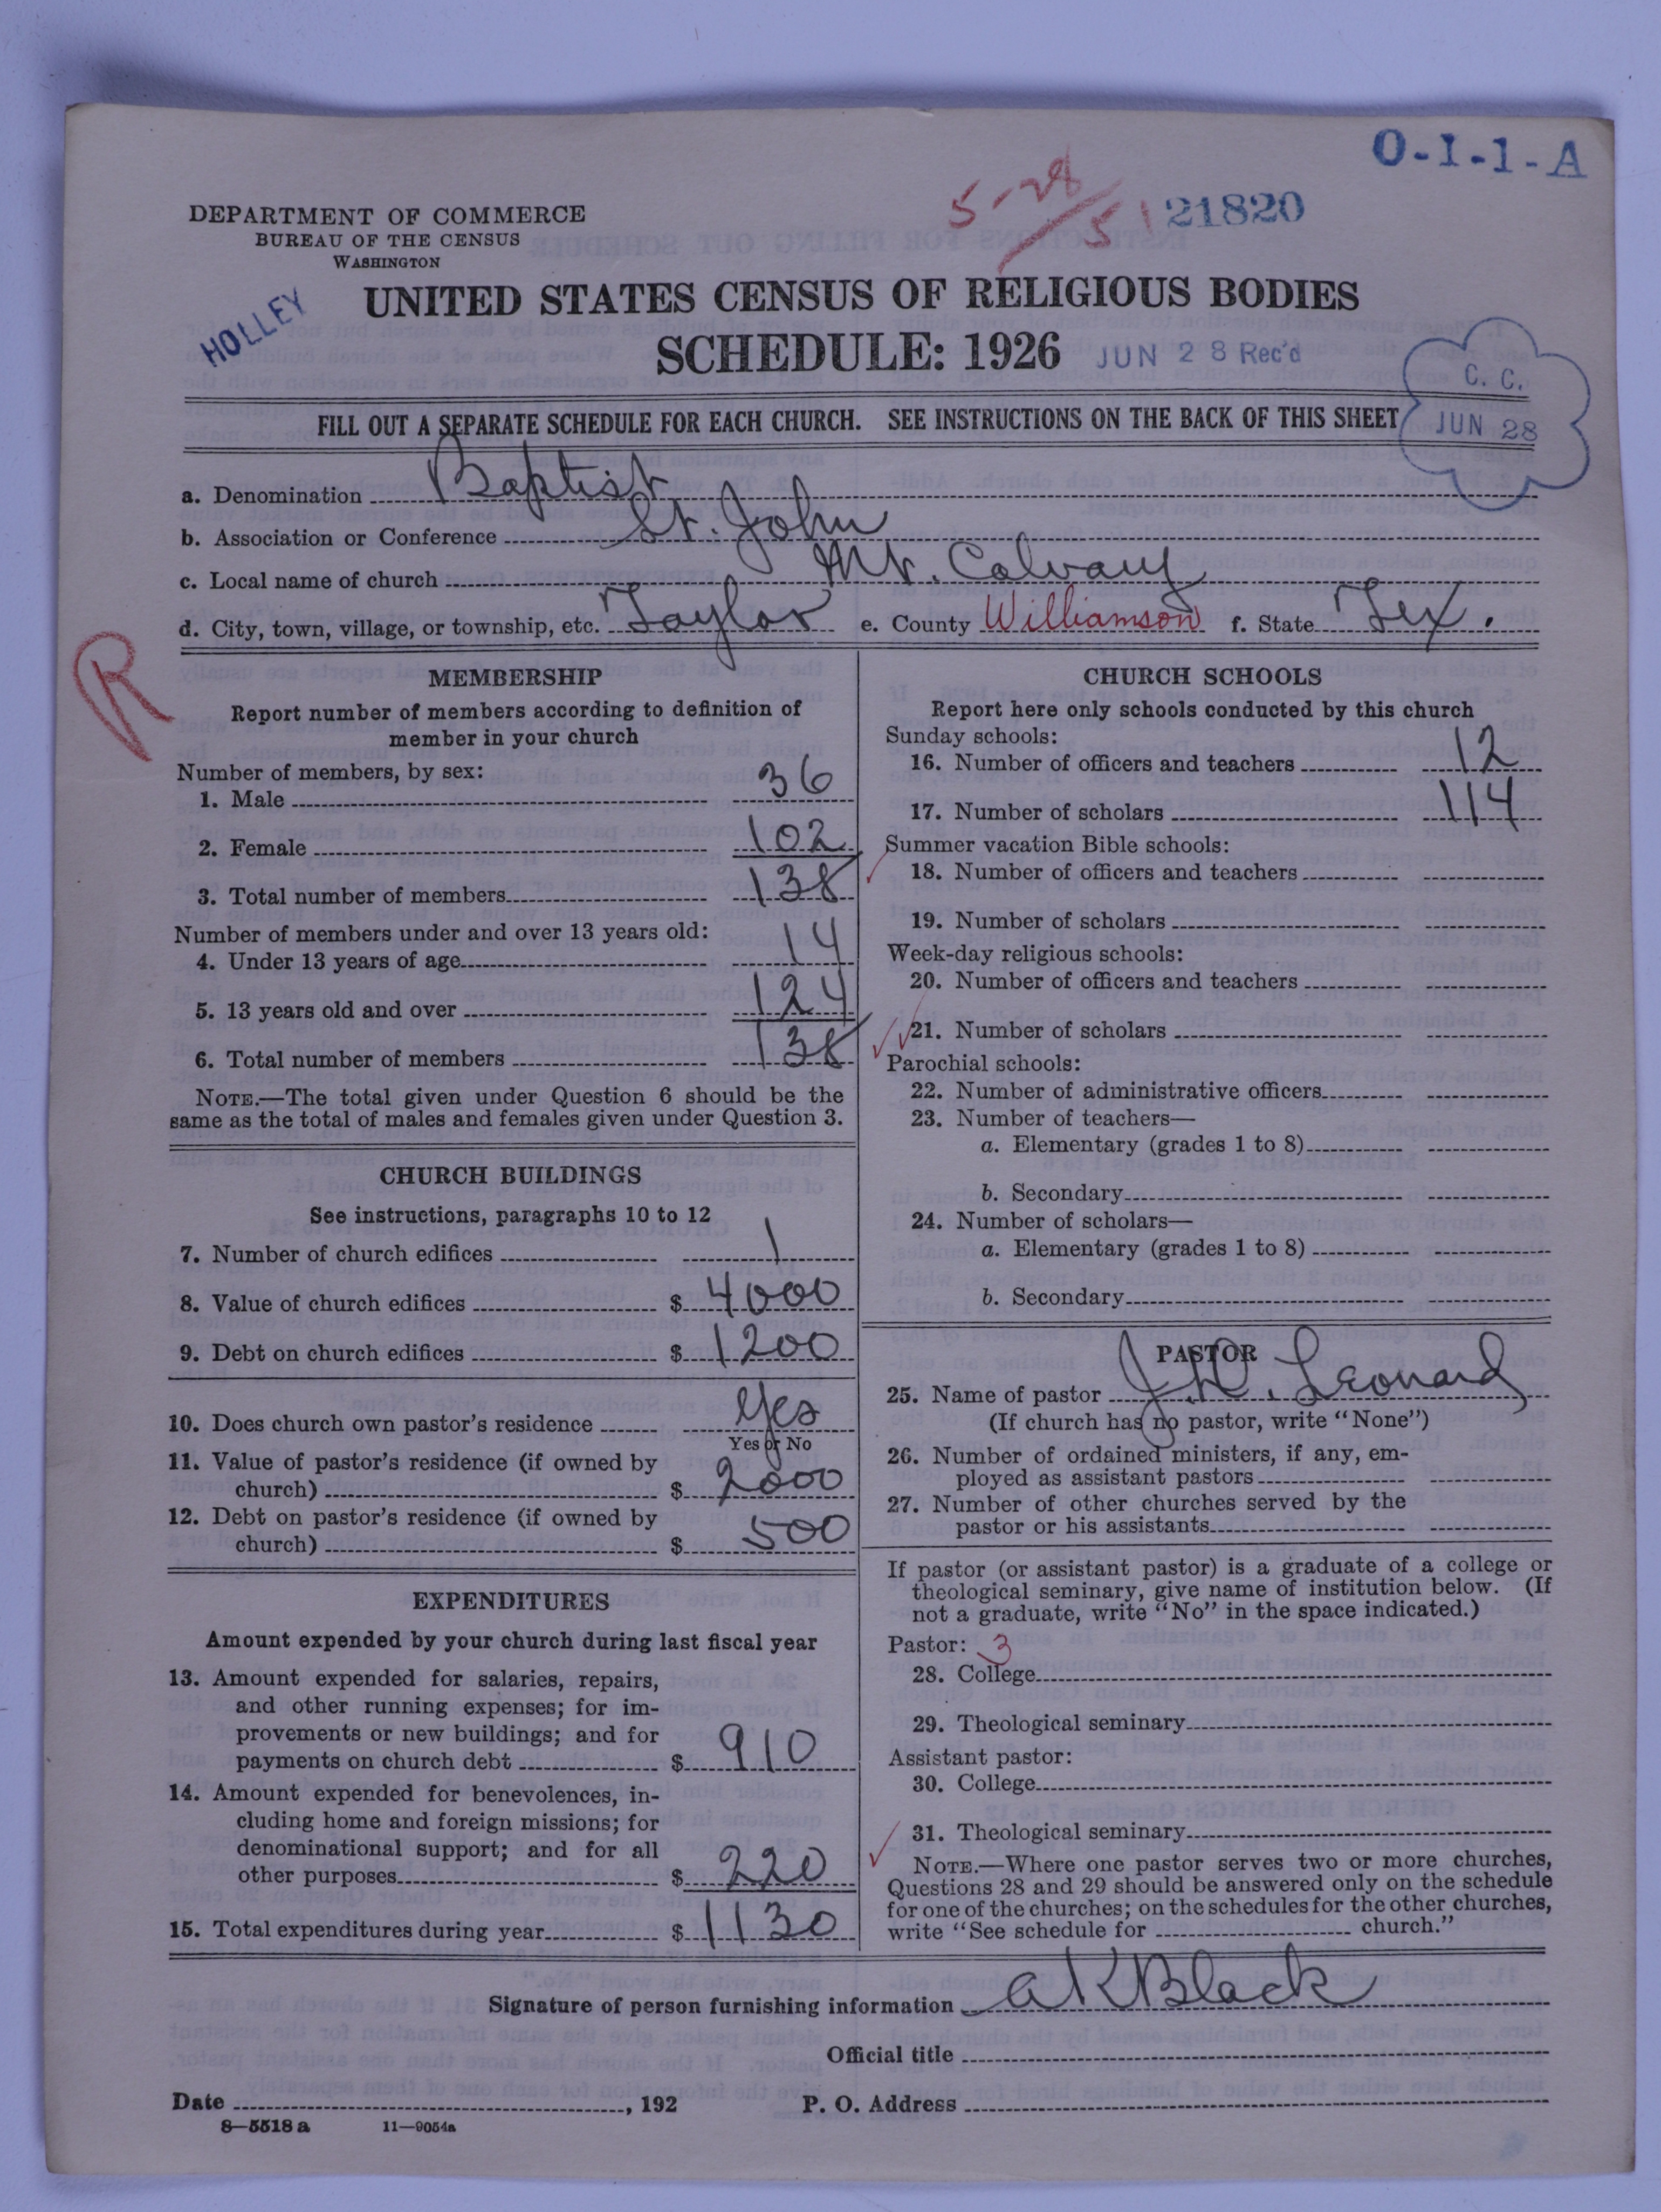 O-I-1-A
5-28/51
21820
DEPARTMENT OF COMMERCE
BUREAU OF THE CENSUS
WASHINGTON
HOLLEY
UNITED STATES CENSUS OF RELIGIOUS BODIES
SCHEDULE: 1926 JUN 28 Rec'd
C. C.
JUN 28
FILL OUT A SEPARATE SCHEDULE FOR EACH CHURCH. SEE INSTRUCTIONS ON THE BACK OF THIS SHEET
a. Denomination Baptist
b. Association or Conference St. John
c. Local name of church Mt. Calvary
d. City, town, village, or township, etc. Taylor e. County Williamson f. State Tex.
R
MEMBERSHIP
Report number of members according to definition of
member in your church
Number of members, by sex:
1. Male 36
2. Female 102
3. Total number of members 138
Number of members under and over 13 years old:
4. Under 13 years of age 14
5. 13 years old and over 124
6. Total number of members 138
NOTE.—The total given under Question 6 should be the
same as the total of males and females given under Question 3.
CHURCH BUILDINGS
See instructions, paragraphs 10 to 12
7. Number of church edifices 1
8. Value of church edifices $ 4000
9. Debt on church edifices $ 1200
10. Does church own pastor's residence Yes
Yes or No
11. Value of pastor's residence (if owned by
church) $ 2000
12. Debt on pastor's residence (if owned by
church) $ 500
EXPENDITURES
Amount expended by your church during last fiscal year
13. Amount expended for salaries, repairs,
and other running expenses; for im-
provements or new buildings; and for
payments on church debt $ 910
14. Amount expended for benevolences, in-
cluding home and foreign missions; for
denominational support; and for all
other purposes $ 220
15. Total expenditures during year $ 1130
CHURCH SCHOOLS
Report here only schools conducted by this church
Sunday schools:
16. Number of officers and teachers 12
17. Number of scholars 114
Summer vacation Bible schools:
18. Number of officers and teachers
19. Number of scholars
Week-day religious schools:
20. Number of officers and teachers
21. Number of scholars
Parochial schools:
22. Number of administrative officers
23. Number of teachers—
a. Elementary (grades 1 to 8)
b. Secondary
24. Number of scholars—
a. Elementary (grades 1 to 8)
b. Secondary
PASTOR
25. Name of pastor J. W. Leonard
(If church has no pastor, write "None")
26. Number of ordained ministers, if any, em-
ployed as assistant pastors
27. Number of other churches served by the
pastor or his assistants
If pastor (or assistant pastor) is a graduate of a college or
theological seminary, give name of institution below. (If
not a graduate, write "No" in the space indicated.)
Pastor: 3
28. College
29. Theological seminary
Assistant pastor:
30. College
31. Theological seminary
NOTE.—Where one pastor serves two or more churches,
Questions 28 and 29 should be answered only on the schedule
for one of the churches; on the schedules for the other churches,
write "See schedule for church."
Signature of person furnishing information A K Black
Official title
Date , 192 P. O. Address
8—5518 a 11—9054a